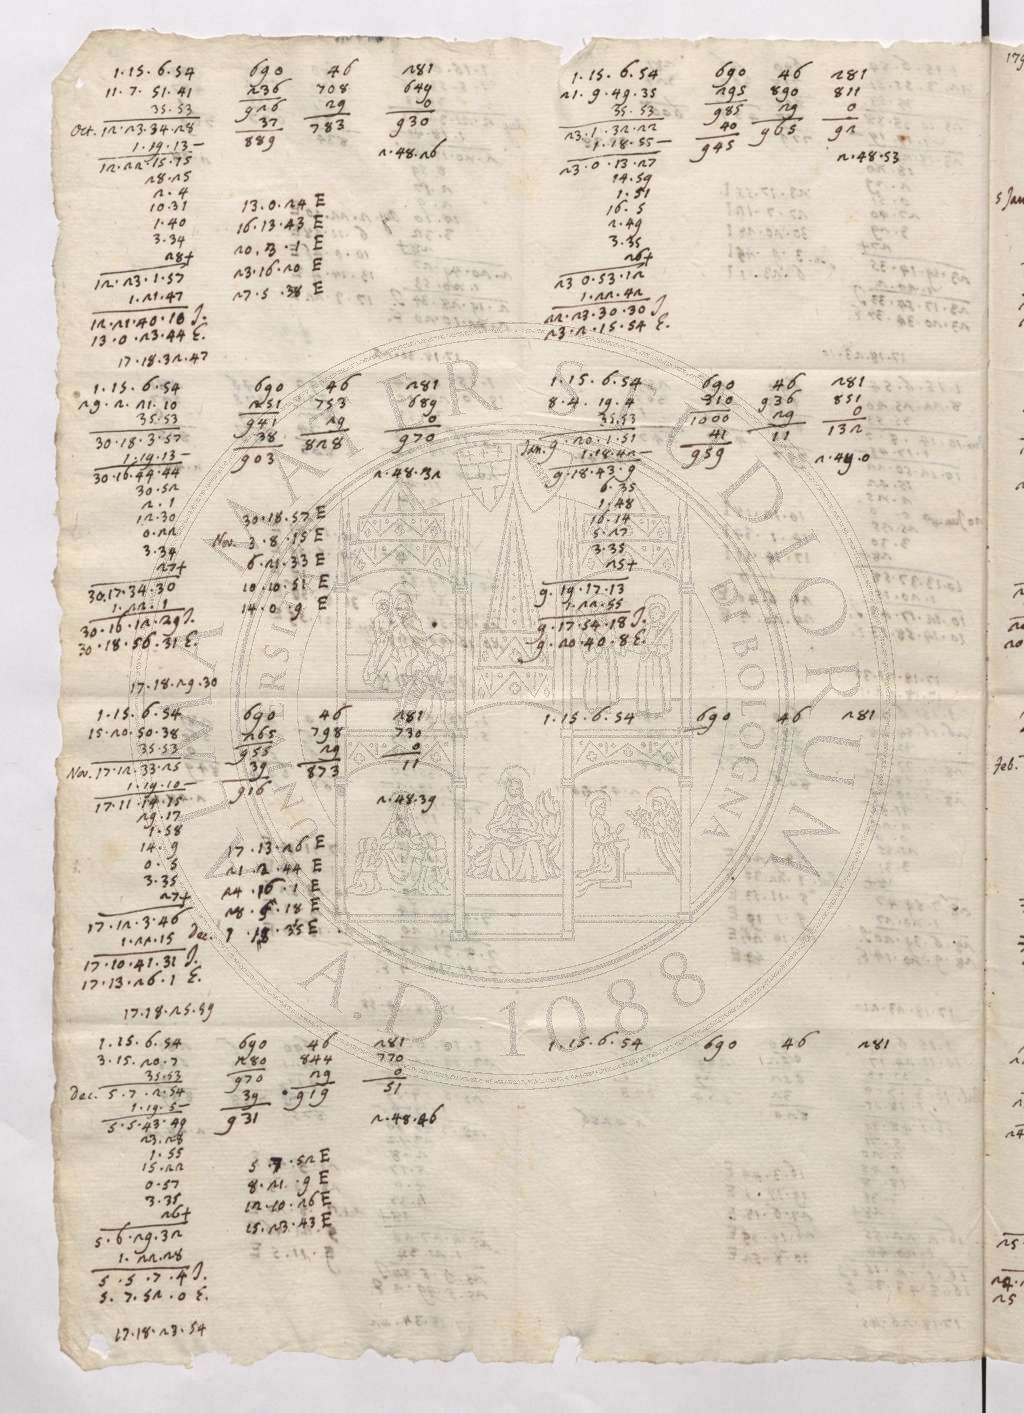 1.15.6.54 690 46 281
11.7.51.41 236 708 649
35.53 926 29 0
Oct. 12.23.34.28 37 783 930
1.19.13— 889
12.22.15.15 2.48.26
28.25
2.4
10.31 13.0.24 E
1.40 16.13.43 E
3.34 20.3.1 E
26+ 23.16.20 E
12.23.1.57 27.5.38 E
1.21.47
12.21.40.10 J.
13.0.23.44 E.
17.18.32.47
1.15.6.54 690 46 281
29.2.21.10 251 753 689
35.53 941 29 0
30.18.3.57 38 828 970
1.19.13— 903
30.16.44.44 2.48.32
30.52
2.1
12.30 30.18.57 E
0.22 Nov. 3.8.15 E
3.34 6.21.33 E
27+ 10.10.51 E
30.17.34.30 14.0.9 E
1.22.1
30.16.12.29 J.
30.18.56.31 E.
17.18.29.30
1.15.6.54 690 46 281
15.20.50.38 265 798 730
35.53 955 29 0
Nov. 17.12.33.25 39 873 11
1.19.10— 916
17.11.14.15 2.48.39
29.17
1.58
14.9 17.13.26 E
0.5 21.2.44 E
3.35 24.16.1 E
27+ 28.5.18 E
17.12.3.46 Dec. 1.18.35 E
1.22.15
17.10.41.31 J.
17.13.26.1 E.
17.18.25.59
1.15.6.54 690 46 281
3.15.20.7 280 844 770
35.53 970 29 0
Dec. 5.7.2.54 39 919 51
1.19.5— 931
5.5.43.49 2.48.46
23.28
1.55
15.22 5.7.52 E
0.57 8.21.9 E
3.35 12.10.26 E
26+ 15.23.43 E
5.6.29.32
1.22.28
5.5.7.4 J.
5.7.52.0 E.
17.18.23.54
1.15.6.54 690 46 281
21.9.49.35 295 890 811
35.53 985 29 0
23.1.32.22 40 965 92
1.18.55— 945
23.0.13.27 2.48.53
14.59
1.51
16.5
2.49
3.35
26+
23 0.53.12
1.22.42
22.23.30.30 J.
23.2.15.54 E.
1.15.6.54 690 46 281
8.4.19.4 310 936 851
35.53 1000 29 0
Jan. 9.20.1.51 41 11 132
1.18.42— 959
9.18.43.9 2.49.0
6.35
1.48
16.14
5.27
3.35
25+
9.19.17.13
1.22.55
9.17.54.18 J.
9.20.40.8 E.
1.15.6.54 690 46 281
1.15.6.54 690 46 281
179
5 Jan
Feb.
ALMA MATER STUDIORUM
UNIVERSITÀ DI BOLOGNA
A.D. 1088